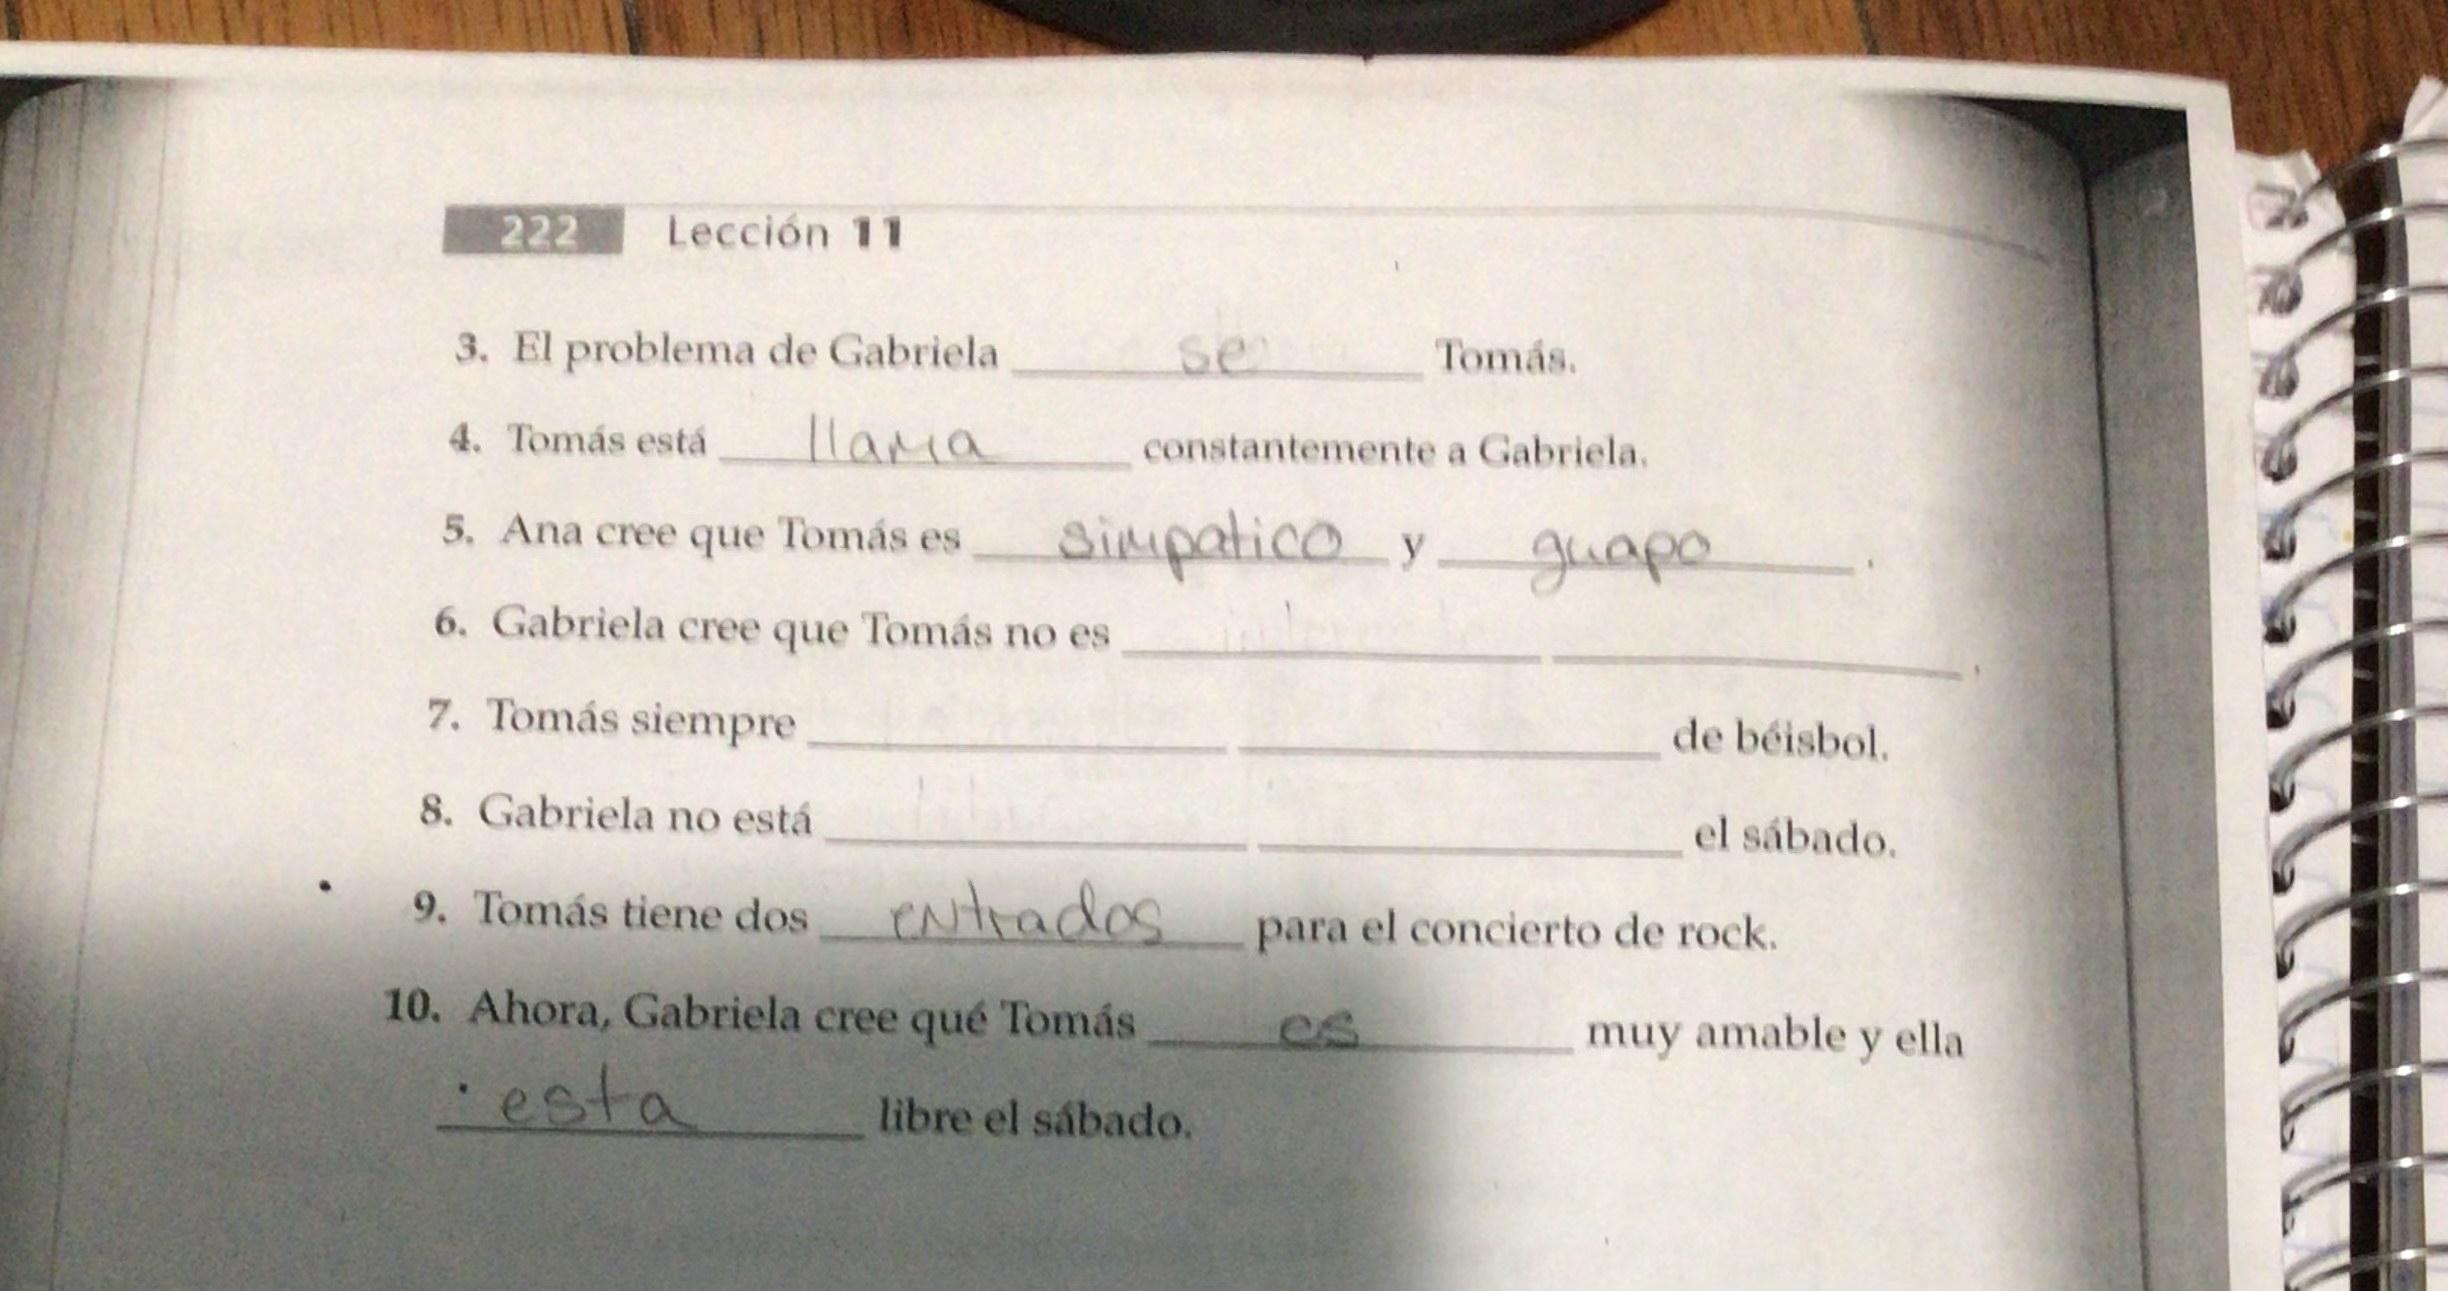 222 Lección 11
3. El problema de Gabriela se Tomás.
4. Tomás está llama constantemente a Gabriela.
5. Ana cree que Tomás es simpatico y guapo.
6. Gabriela cree que Tomás no es
7. Tomás siempre de béisbol.
8. Gabriela no está el sábado.
9. Tomás tiene dos entrados para el concierto de rock.
10. Ahora, Gabriela cree qué Tomás es muy amable y ella
esta libre el sábado.